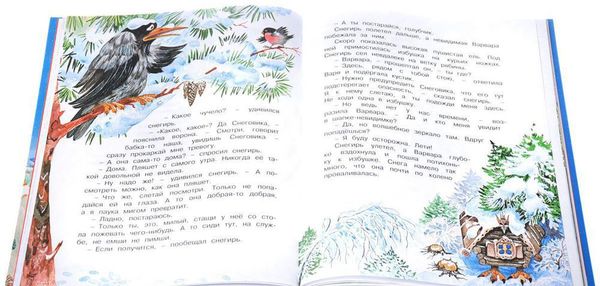 Какое чучело? – удивился
снегирь.
– «Какое, какое»? Да Снеговик, –
пояснила ворона. – Смотри, говорю
бабка-то наша, увидишь Снеговика –
сразу прокаркай мне тревогу.
– А она сама-то дома? – спросил снегирь.
– Дома. Пляшет с самого утра. Никогда её та-
кой довольной не видела.
– Ну надо же! – удивился снегирь. – А по-
смотреть можно, как она пляшет.
– Что же, слетай посмотри. Только не попа-
дайся ей на глаза. А то она добрая-то добрая,
а в паука мигом превратит.
– Ладно, постараюсь.
– Только ты, это, милый, стащи у неё со сто-
ла пожевать чего-нибудь. А то сиди тут, на служ-
бе, не емши не пимши.
– Если получится, – пообещал снегирь.
– А ты постарайся, голубчик.
Снегирь полетел дальше, а невидимая Варвара
побежала за ним.
Скоро показалась высокая пушистая ель. Под
ней примостилась избушка на курьих ножках.
Снегирь сел невдалеке на ветку рябины.
– Варвара, – прошептал он, – ты где?
– Здесь, рядом с тобой стою, – ответила
Варя и подёргала кустик.
– Нужно предупредить Снеговика, что его тут
подстерегает опасность, – сказал снегирь. –
Я к нему слетаю, а ты подожди меня здесь.
Не ходи одна в избушку.
– Но ведь у нас времени, воз-
разила Варвара. – Да и кто меня увидит
в шапке-невидимке?
– Да, но волшебное зеркало там. Вдруг
попадёшься?
– Я буду осторожна. Лети!
Снегирь улетел, а Варвара глубо-
ко вздохнула и пошла потихонь-
ку к избушке. Снега намело так
много, что она почти по колено
проваливалась.